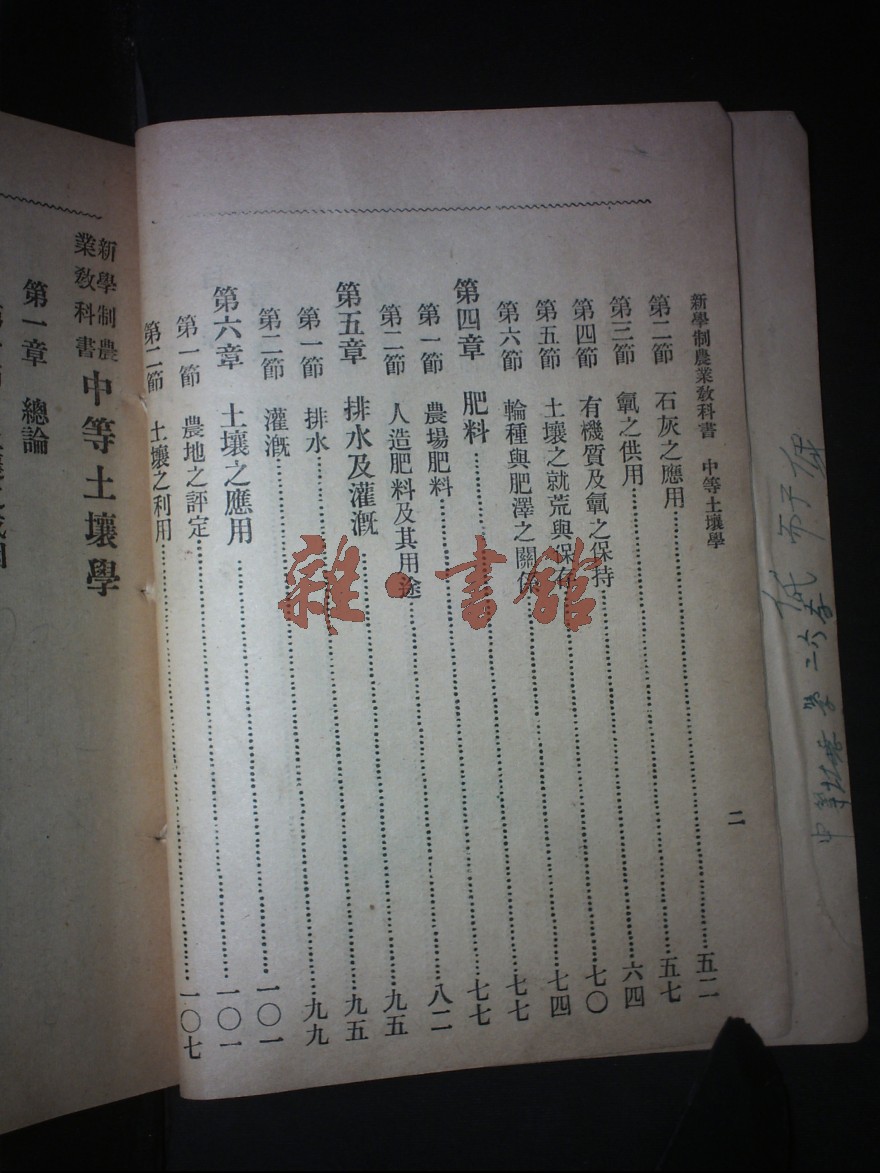 新學制農業教科書 中等土壤學
第二節 石灰之應用……五二
第三節 之供用……五七
第四節 有機質及 之保持……六四
第五節 土壤之就荒與保存……七〇
第六節 輪種與肥澤之關係……七四
第四章 肥料……七七
第一節 農場肥料……七七
第二節 人造肥料及其用途……八二
第五章 排水及灌溉……九五
第一節 排水……九五
第二節 灌溉……九九
第六章 土壤之應用……一〇一
第一節 農地之評定……一〇一
第二節 土壤之利用……一〇七
二
新學制農業教科書 中等土壤學
第一章 總論
雜·書館